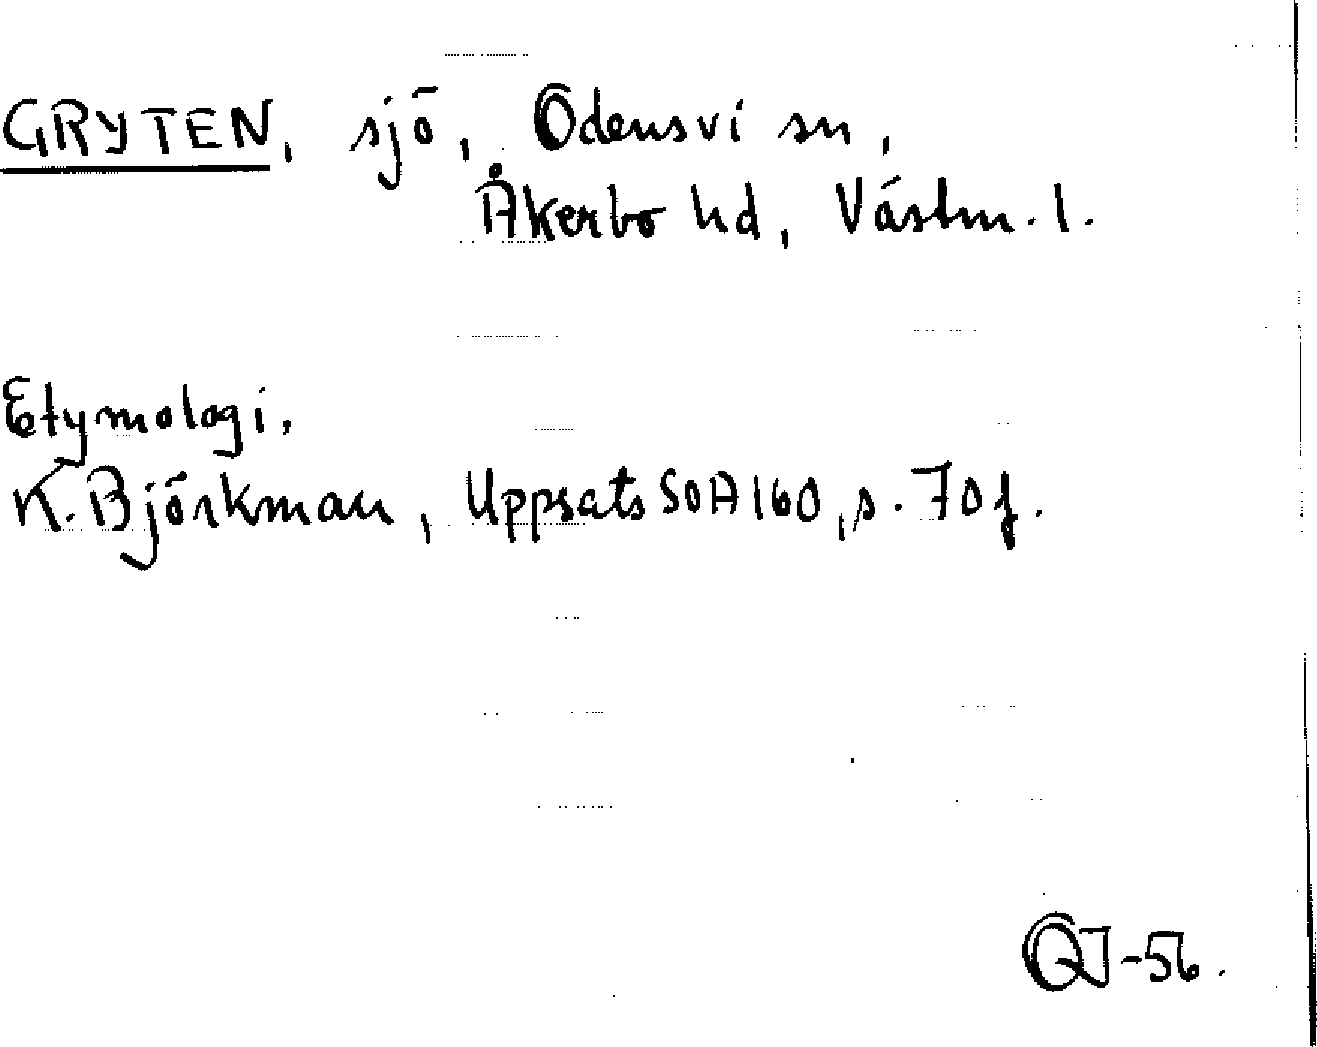 GRYTEN, sjö, Odensvi sn,
Åkerbo hd, Västm. l.
Etymologi.
K. Björkman, Uppsats SOA 160, s. 70 f.
OJ-56.